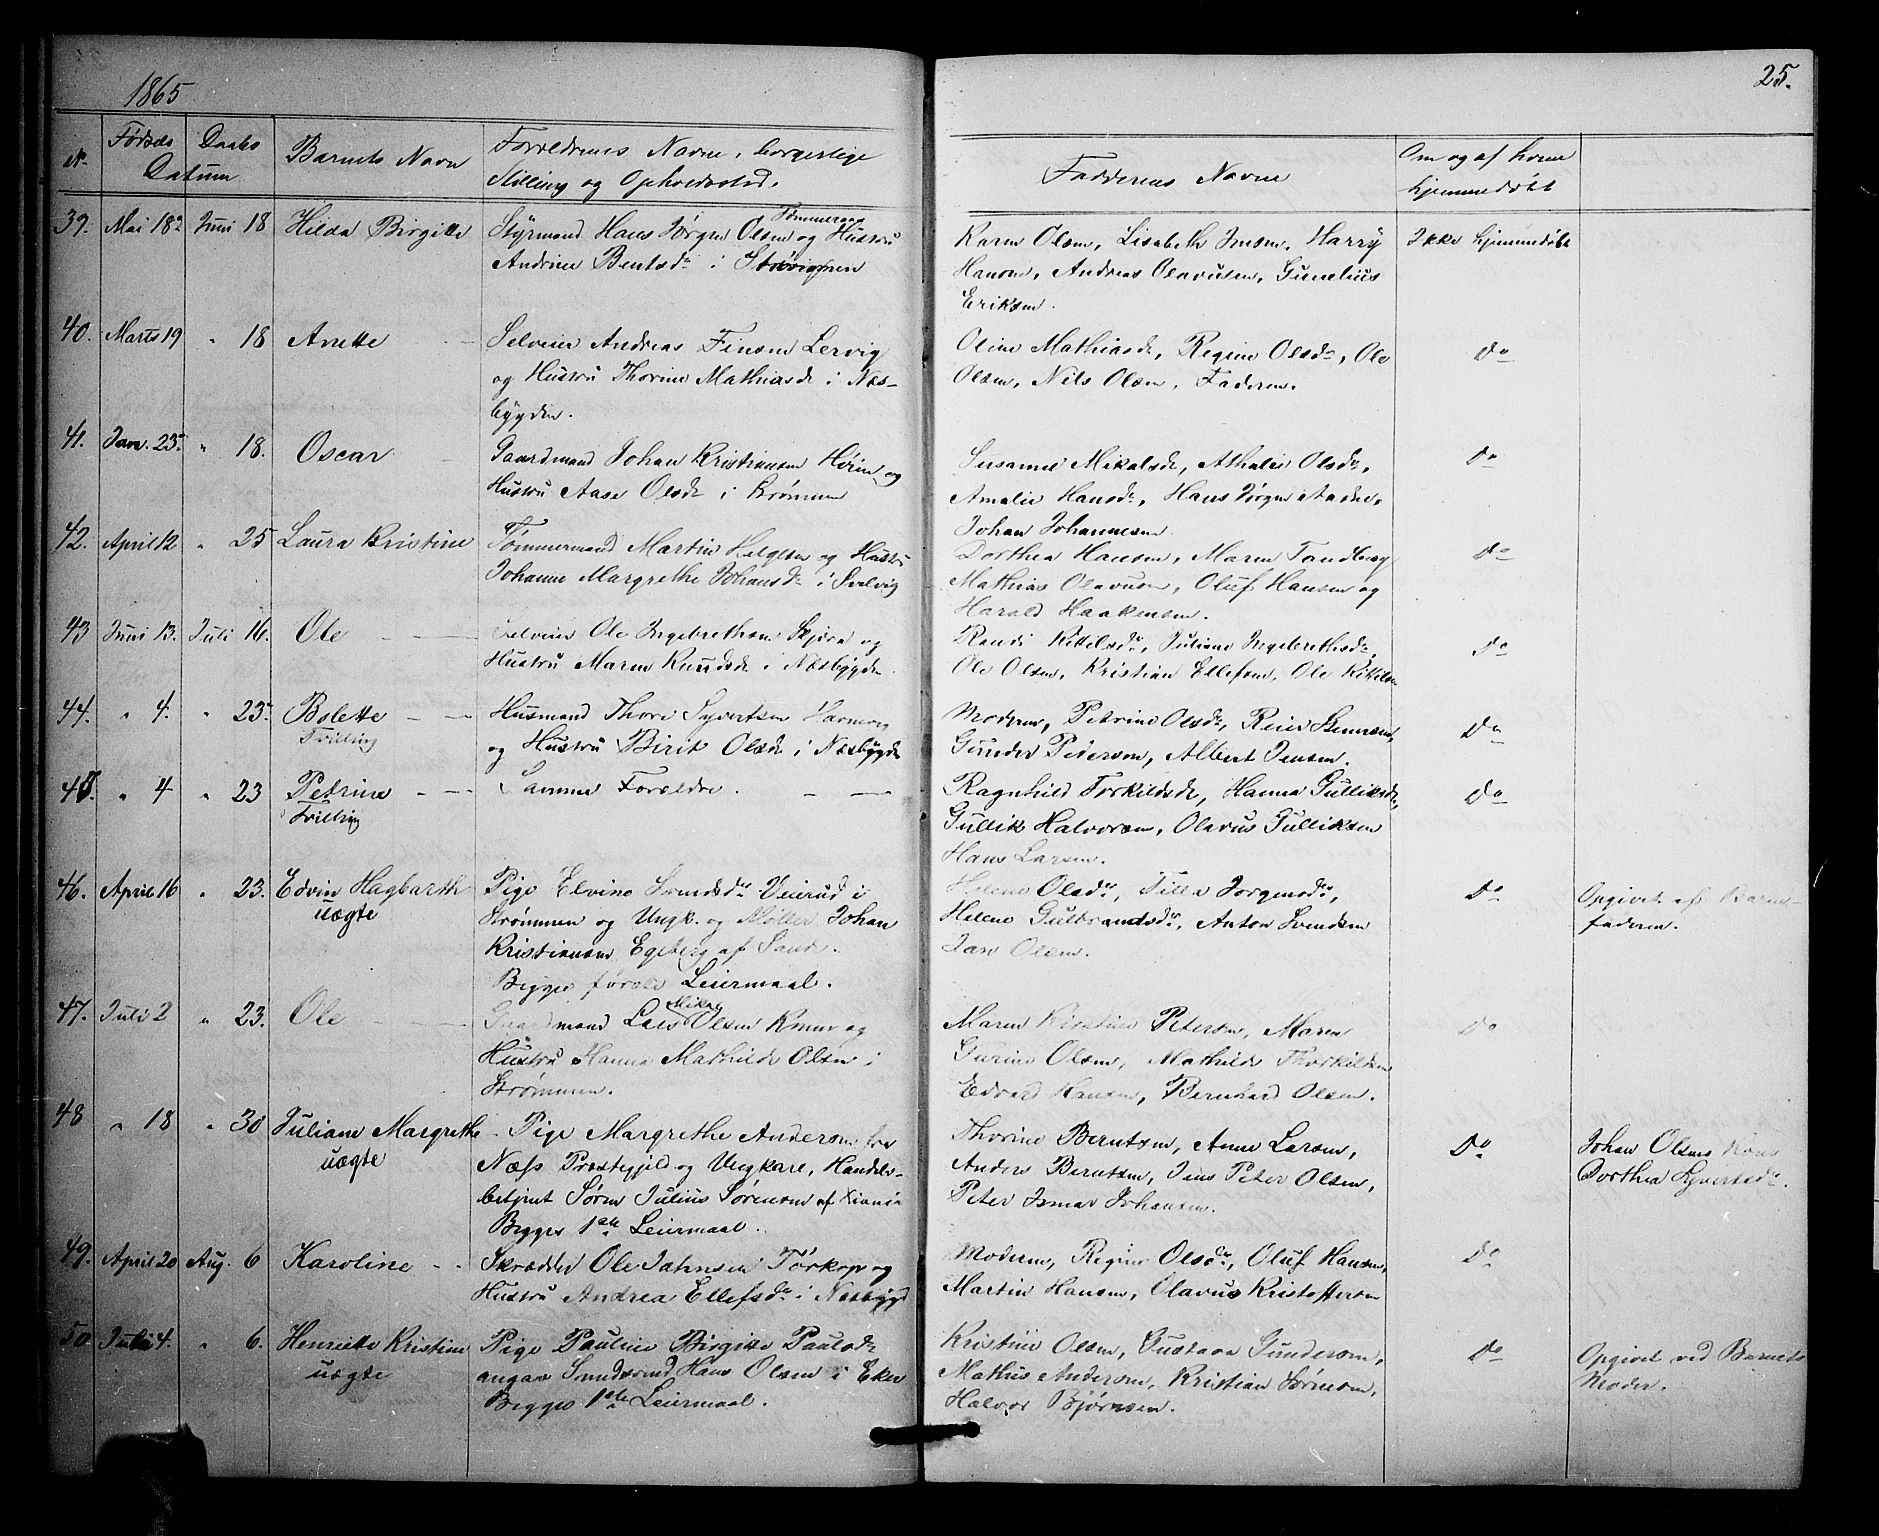 1865
25.
№ Fødsels Daabs Datum Barnets Navn
Forældrenes Navne, borgerlige
Stilling og Opholdssted.
Faddernes Navne
Om og af hvem
hjemmedøbt
39. Mai 18 Juni 18 Hilda Birgitte
Tømmeraas
Styrmand Hans Jørgen Olsen og Hustru
Andrine Bentsdr i
Karen Olsen, Lisabeth Jensen, Harry
Hansen, Andreas Olavusen, Gunelius
Eriksen.
Ikke hjemmedøbt
40. Marts 19 " 18 Anette
Selveier Andreas Finsen Lervig
og Hustru Thorine Mathiasdr i Næs-
bygden.
Oline Mathiasdr, Regine Olsdr, Ole
Olsen, Nils Olsen, Faderen.
Do
41. Jan. 23. " 18. Oscar
Gaardmand Johan Kristiansen Hørin og
Hustru Aase Olsdr i Strømmen
Susanne Mikalsdr, Athalie Olsdr,
Amalie Hansdr, Hans Jørgen
Johan Johannesen
Do
42. April 12 " 25 Laura Kristine
Tømmermand Martin Helgesen og Hustru
Johanne Margrethe Johansdr i Svelvig
Dorthea Hansen, Maren Tandberg
Mathias Olavusen, Oluf Hansen og
Harald Haakensen.
Do
43 Juni 13. Juli 16. Ole
Selveier Ole Ingebrethsen Skjøra og
Hustru Maren Knudsdr i Næsbygden
Randi Kittelsdr, Juliane Ingebrethsdr,
Ole Olsen, Kristian Ellefsen, Ole Kittilsen
Do
44. " 4. " 23. Bolette
Tvilling
Husmand Thore Syvertsen
og Hustru Birit Olsdr i Næsbygden
Moderen, Petrine Olsdr, Reier
Gunder Pedersen, Albert Jensen.
Do
45. " 4 " 23 Petrine
Tvilling
Samme Forældre.
Ragnhild Torkildsdr, Hanna Gulliksdr,
Gullik Halvorsen, Olavus Gulliksen
Hans Larsen.
Do
46. April 16 " 23. Edvin Hagbarth
uægte
Pige Elvine Svendsdr Veierud i
Strømmen og Ungk. og Møller Johan
Kristiansen Egeberg af Sande.
Begges første Leiermaal.
Helene Olsdr, Tilla Jørgensdr,
Helene Gulbrandsdr, Anton Svendsen
Jan Olsen.
Do
Opgivet af Barne-
faderen.
47. Juli 2 " 23. Ole
Mikal
Gaardmand Lars Olsen og
Hustru Hanna Mathilde Olsen i
Strømmen.
Maren Kirstine Petersen, Maren
Gurine Olsen, Mathilde Thorkildsen
Edvard Hansen, Bernhard Olsen.
Do
48 " 18 " 30 Juliane Margrethe
uægte
Pige Margrethe Andersen fra
Næss Præstegjeld og Ungkarl, Handels-
betjent Søren Julius Sørensen af Xiania
Begges 1ste Leiermaal.
Thorine Berntsen, Anne Larsen,
Anders Berntsen, Jens Peter Olsen,
Peter Ismar Johansen.
Do
Johan Olsens Kone
Dorthea Syvertsdr.
49. April 20 Aug. 6 Karoline
Skrædder Ole Jahnsen Tørkop og
Hustru Andrea Ellefsdr i Næsbygd
Moderen, Regine Olsdr, Oluf Hansen,
Martin Hansen, Olavus Kristoffersen
Do
50. Juli 4. " 6. Henriette Kristine
uægte
Pige Pauline Birgitte Paulsdr
angav Hans Olsen i Eker
Begges 1ste Leiermaal.
Kristine Olsen, Gustava Gundersen,
Mathis Andersen, Kristian Sørensen,
Halvor Bjørnsen.
Do
Opgivet ved Barnets
Moder.